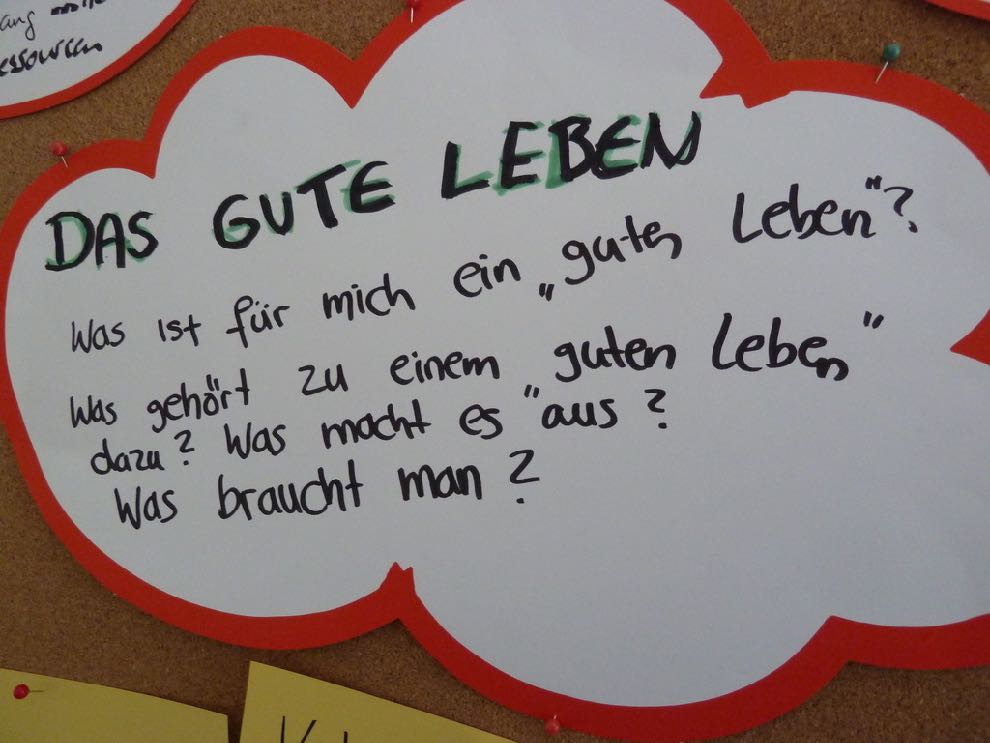 ang
essourcen
DAS GUTE LEBEN
Was ist für mich ein „gutes Leben"?
Was gehört zu einem "guten Leben"
dazu? Was macht es aus?
Was braucht man?